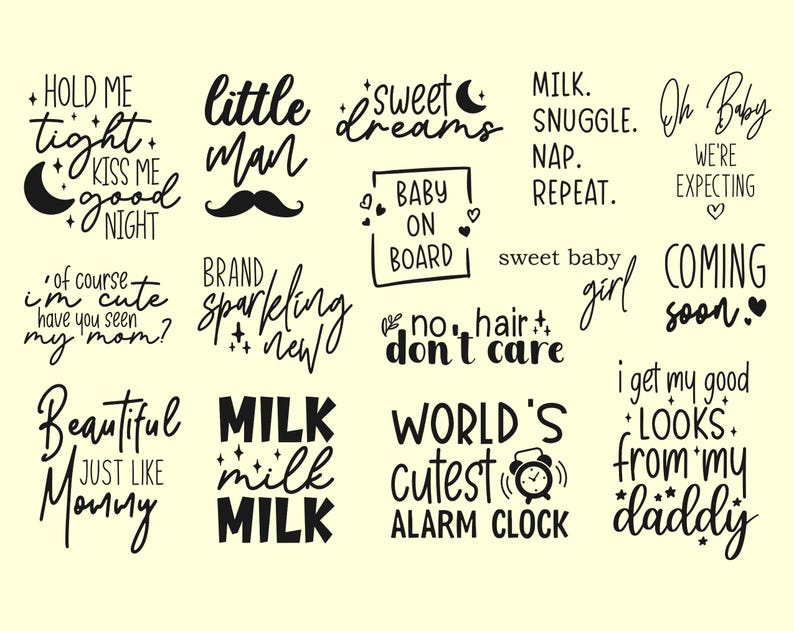 HOLD ME
tight
KISS ME
good
NIGHT
little
man
sweet
dreams
MILK.
SNUGGLE.
NAP.
REPEAT.
Oh Baby
WE'RE
EXPECTING
BABY
ON
BOARD
'of course
i'm cute
have you seen
my mom?
BRAND
sparkling
new
no hair
don't care
sweet baby
girl
COMING
soon
Beautiful
JUST LIKE
Mommy
MILK
milk
MILK
WORLD'S
cutest
ALARM CLOCK
i get my good
LOOKS
from my
daddy